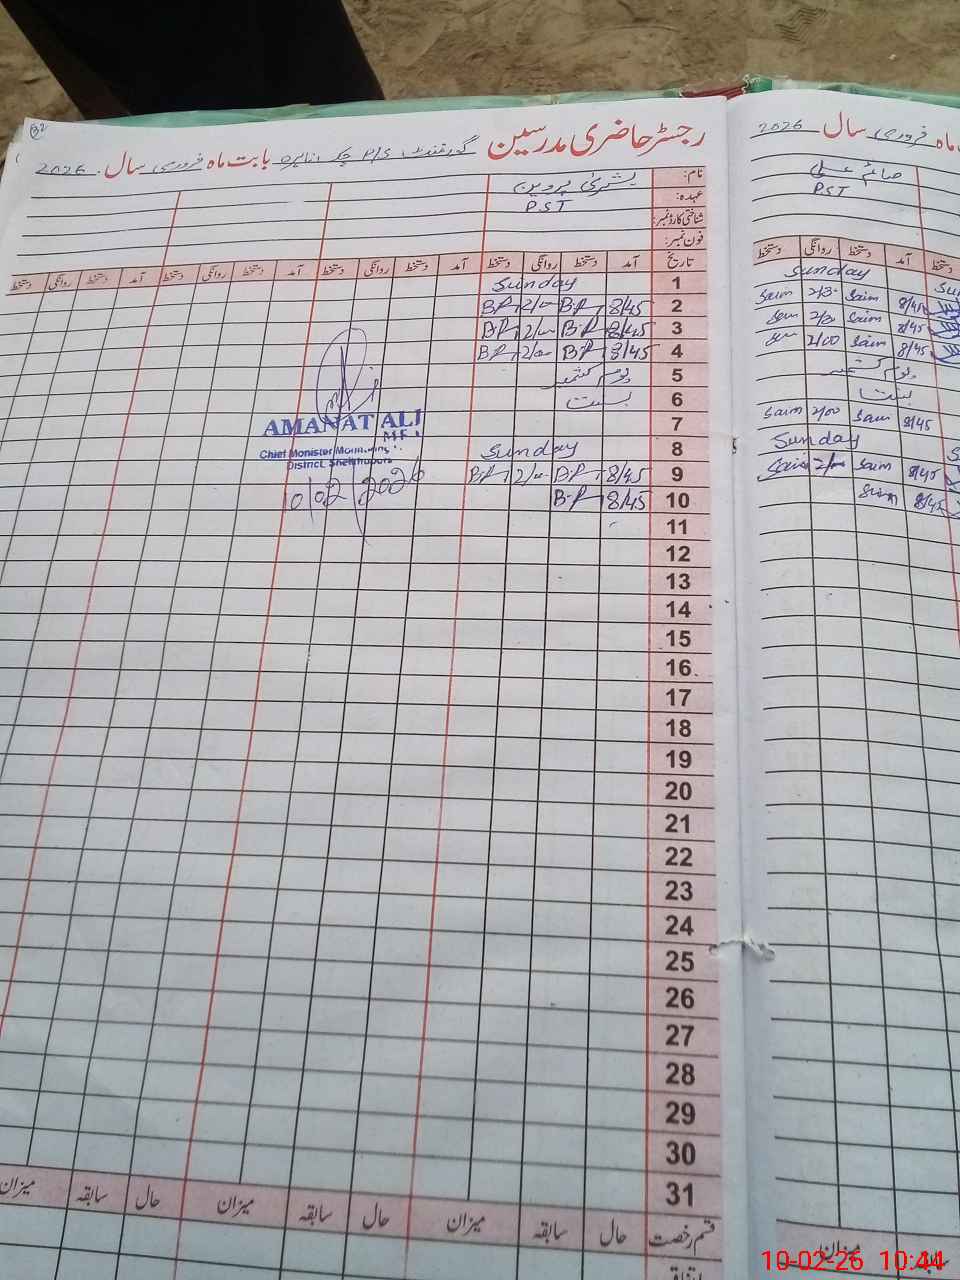 32
رجسٹر حاضری مدرسین گورنمنٹ P/S چک بابت ماہ فروری سال 2026
نام: بشریٰ پروین
عہدہ: PST
شناختی کارڈ نمبر:
فون نمبر:
تاریخ آمد دستخط روانگی دستخط آمد دستخط روانگی دستخط آمد دستخط روانگی دستخط آمد دستخط روانگی دستخط
1 Sunday
2 8/45 B.P 2/00 B.P
3 8/45 B.P 2/00 B.P
4 8/45 B.P 2/00 B.P
5 یوم کشمیر
6 بسنت
7
8 Sunday
9 8/45 B.P 2/00 B.P
10 8/45 B.P
11
12
13
14
15
16
17
18
19
20
21
22
23
24
25
26
27
28
29
30
31
قسم رخصت حال سابقہ میزان حال سابقہ میزان حال سابقہ میزان
AMANAT ALI
Chief Minister Monitoring
District, Sheikhupura
10/02/2026
ماہ فروری سال 2026
صائم علی
PST
دستخط آمد دستخط روانگی دستخط
Sunday
8/45 Saim 2/00 Saim
8/45 Saim 2/00 Saim
8/45 Saim 2/00 Saim
یوم کشمیر
بسنت
8/45 Saim 2/00 Saim
Sunday
8/45 Saim 2/00 Saim
8/45 Saim
سابقہ میزان
10-02-26 10:44